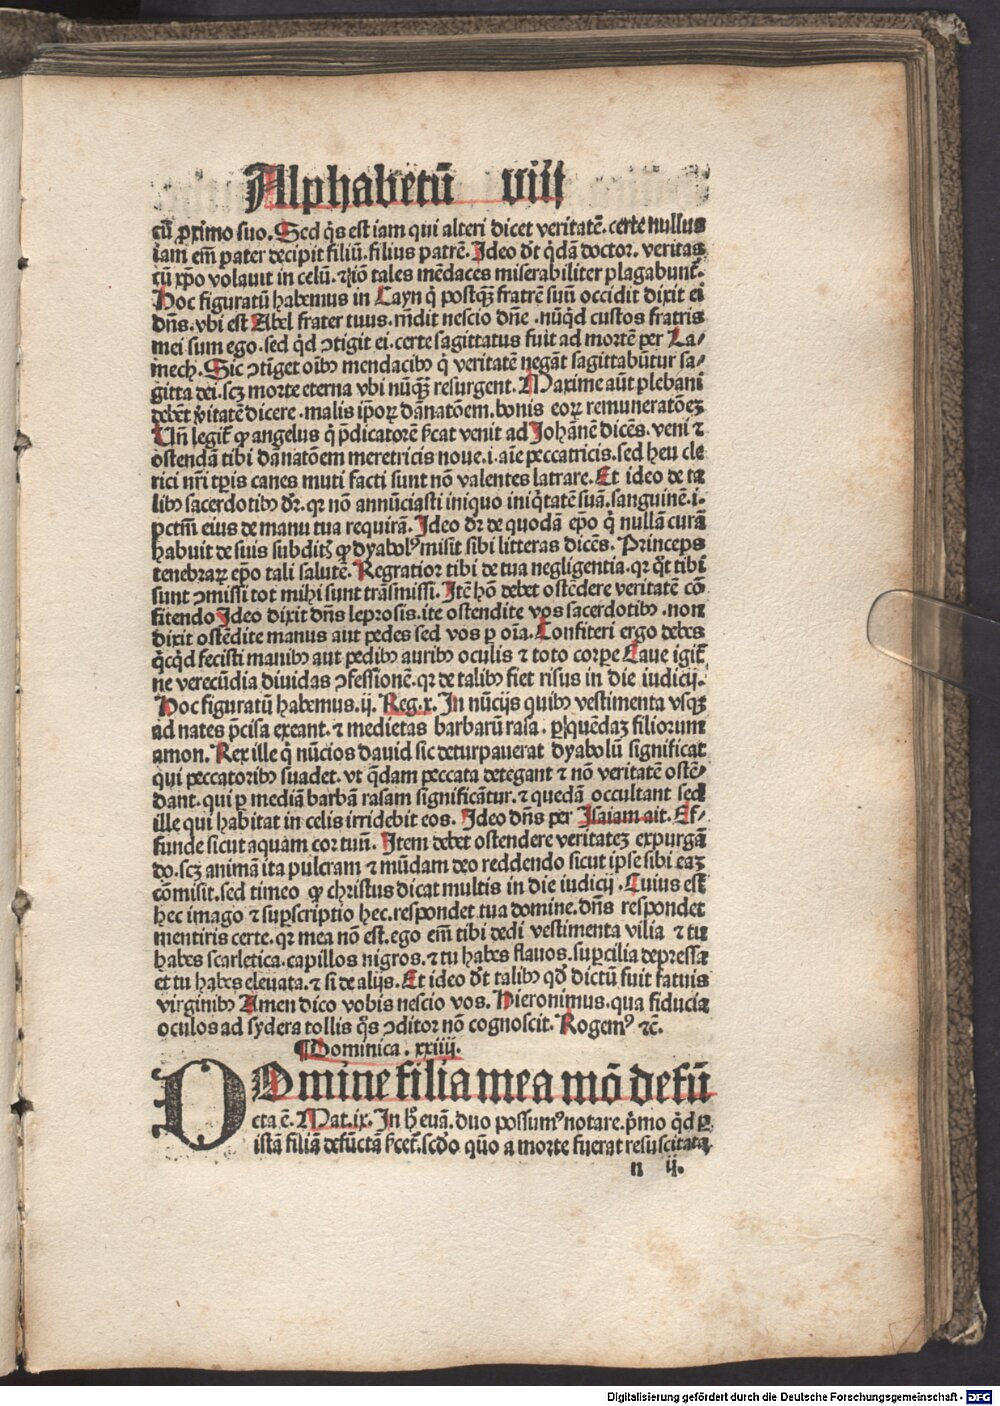 Alphabetū viij
cū ꝓximo suo. Sed q̄s est iam qui alteri dicet veritatē. certe nullus
iam em̄ pater decipit filiū. filius patrē. Ideo dr̄ q̄dā doctor. veritas
cū xp̄o volauit in celū. et iō tales mēdaces miserabiliter plagabunt᷑.
Hoc figuratū habemus in Cayn q̄ postqꝫ fratrē suū occidit dixit ei
dn̄s. vbi est Abel frater tuus. rn̄dit nescio dn̄e. nūq̄d custos fratris
mei sum ego. sed q̄d ꝯtigit ei. certe sagittatus fuit ad mortē per La⸗
mech. Sic ꝯtinget oībꝰ mendacibꝰ q̄ veritatē negāt sagittabūtur sa⸗
gitta dei. scꝫ morte eterna vbi nūqꝫ resurgent. Maxime aūt plebani
debēt v̄itatē dicere. malis ip̄oꝝ dānatōem. bonis eoꝝ remuneratōeꝫ
Un̄ legit᷑ ꝙ angelus q̄ p̄dicatorē s̄cat venit ad Johānē dicēs. veni ⁊
ostendā tibi dānatōem meretricis noue. i. aīe peccatricis. sed heu cle
rici nr̄i tp̄is canes muti facti sunt nō valentes latrare. Et ideo de ta
libꝰ sacerdotibꝰ dr̄. qꝛ nō annūciasti iniquo iniq̄tatē suā. sanguinē. i.
pctm̄ eius de manu tua requirā. Ideo dr̄ de quodā ep̄o q̄ nullā curā
habuit de suis subditꝭ ꝙ dyabolꝰ misit sibi litteras dicēs. Princeps
tenebraꝝ ep̄o tali salutē. Regratior tibi de tua negligentia. qꝛ q̄t tibi
sunt ꝯmissi tot mihi sunt trāsmissi. Itē hō debet ostēdere veritatē cō
fitendo Ideo dixit dn̄s leprosis. ite ostendite vos sacerdotibꝰ. non
dixit ostēdite manus aut pedes sed vos ꝑ oīa. Confiteri ergo debes
q̄cq̄d fecisti manibꝰ aut pedibꝰ auribꝰ oculis ⁊ toto corꝑe Caue igit᷑
ne verecūdia diuidas ꝯfessionē. qꝛ de talibꝰ fiet risus in die iudicij.
Hoc figuratū habemus. ij. Reg. x. In nūcijs quibꝰ vestimenta vsqꝫ
ad nates p̄cisa exeant. ⁊ medietas barbarū rasa. ꝑ quēdaꝫ filiorum
amon. Rex ille q̄ nūcios dauid sic deturpauerat dyabolū significat
qui peccatoribꝰ suadet. vt q̄dam peccata detegant ⁊ nō veritatē ostē⸗
dant. qui ꝑ mediā barbā rasam significātur. ⁊ quedā occultant sed
ille qui habitat in celis irridebit eos. Ideo dn̄s per Isaiam ait. Ef⸗
funde sicut aquam cor tuū. Item debet ostendere veritateꝫ expurgā
do. scꝫ animā ita pulcram ⁊ mūdam deo reddendo sicut ipse sibi eaꝫ
cōmisit. sed timeo ꝙ christus dicat multis in die iudicij. Cuius est
hec imago ⁊ suꝑscriptio hec. respondet tua domine. dn̄s respondet
mentiris certe. qꝛ mea nō est. ego em̄ tibi dedi vestimenta vilia ⁊ tu
habes scarletica. capillos nigros. ⁊ tu habes flauos. suꝑcilia depressa
et tu habes eleuata. ⁊ si de alijs. Et ideo dr̄ talibꝰ qd̄ dictū fuit fatuis
virginibꝰ Amen dico vobis nescio vos. Hieronimus. qua fiducia
oculos ad sydera tollis q̄s ꝯditor nō cognoscit. Rogemꝰ ⁊c̄.
¶Dominica. xxiiij.
DOmine filia mea mō defū
cta ē. Mat. ix. In h̄ euā. duo possumꝰ notare. p̄mo q̄d ꝑ
istā filiā defūctā s̄cet᷑. scd̄o quō a morte fuerat resuscitata
n ij.
Digitalisierung gefördert durch die Deutsche Forschungsgemeinschaft - DFG